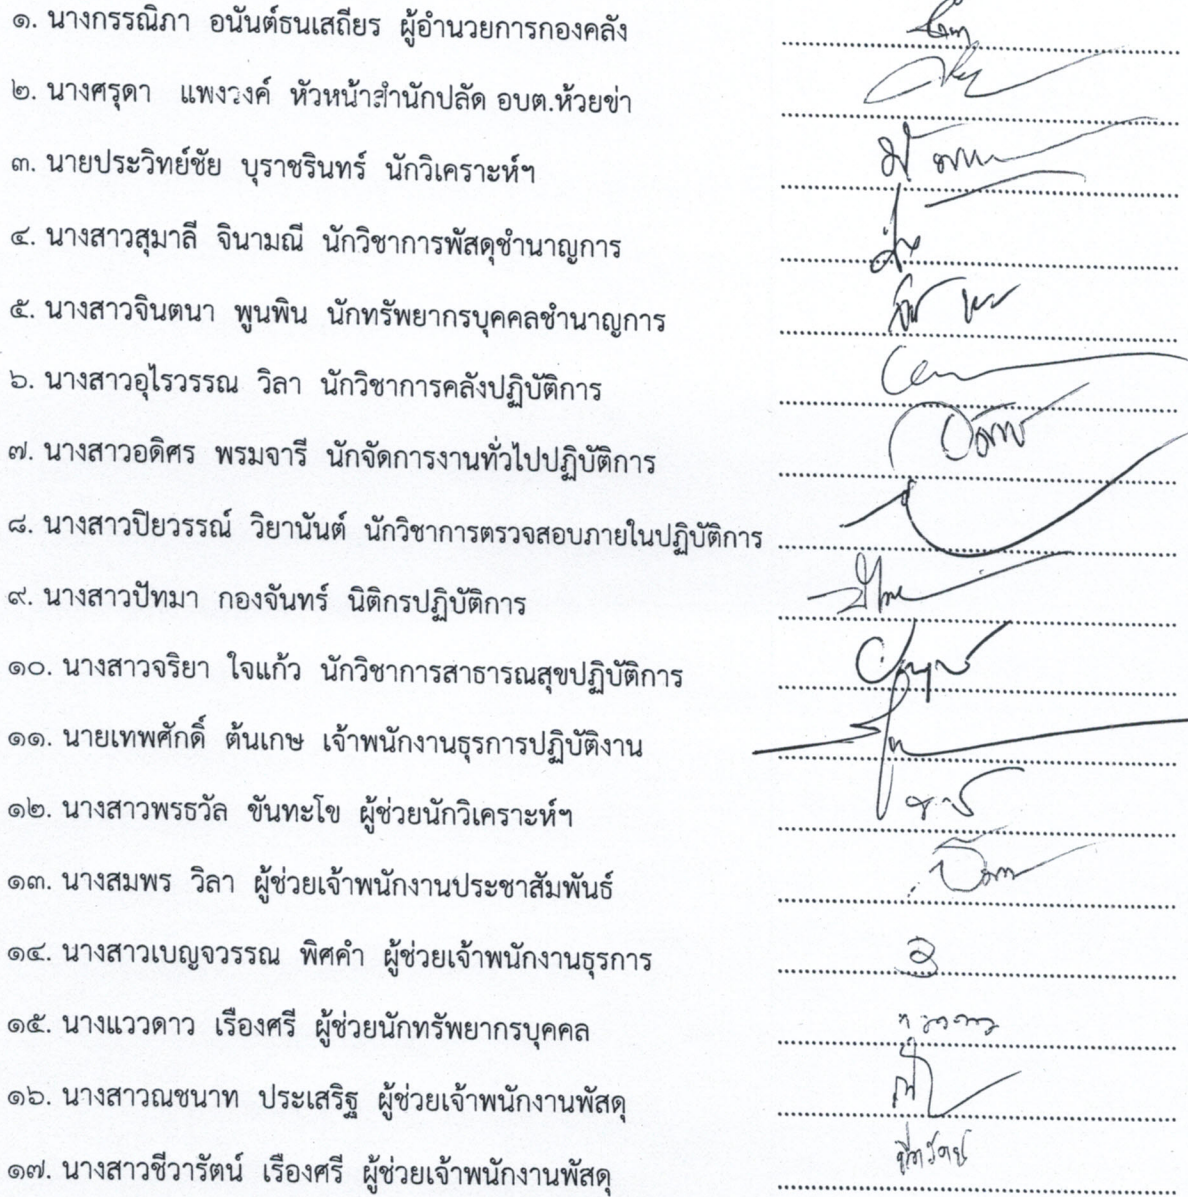 ๑. นางกรรณิภา อนันต์ธนเสถียร ผู้อำนวยการกองคลัง
๒. นางศรุดา แพงวงค์ หัวหน้าสำนักปลัด อบต.ห้วยข่า
๓. นายประวิทย์ชัย บุราชรินทร์ นักวิเคราะห์ฯ
๔. นางสาวสุมาลี จินามณี นักวิชาการพัสดุชำนาญการ
๕. นางสาวจินตนา พูนพิน นักทรัพยากรบุคคลชำนาญการ
๖. นางสาวอุไรวรรณ วิลา นักวิชาการคลังปฏิบัติการ
๗. นางสาวอดิศร พรมจารี นักจัดการงานทั่วไปปฏิบัติการ
๘. นางสาวปิยวรรณ์ วิยานันต์ นักวิชาการตรวจสอบภายในปฏิบัติการ
๙. นางสาวปัทมา กองจันทร์ นิติกรปฏิบัติการ
๑๐. นางสาวจริยา ใจแก้ว นักวิชาการสาธารณสุขปฏิบัติการ
๑๑. นายเทพศักดิ์ ต้นเกษ เจ้าพนักงานธุรการปฏิบัติงาน
๑๒. นางสาวพรธวัล ขันทะโข ผู้ช่วยนักวิเคราะห์ฯ
๑๓. นางสมพร วิลา ผู้ช่วยเจ้าพนักงานประชาสัมพันธ์
๑๔. นางสาวเบญจวรรณ พิศคำ ผู้ช่วยเจ้าพนักงานธุรการ
๑๕. นางแววดาว เรืองศรี ผู้ช่วยนักทรัพยากรบุคคล
๑๖. นางสาวณชนาท ประเสริฐ ผู้ช่วยเจ้าพนักงานพัสดุ
๑๗. นางสาวชีวารัตน์ เรืองศรี ผู้ช่วยเจ้าพนักงานพัสดุ